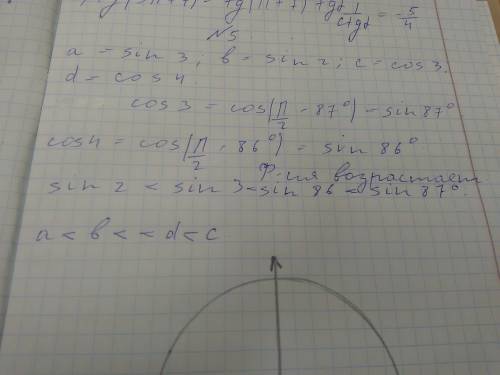 = tg(π+γ) = tgγ = 1/ctgγ = -5/4
N5
a = sin 3; b = sin 2; c = cos 3.
d = cos 4
cos 3 = cos(π/2 - 87°) = sin 87°
cos 4 = cos(π/2 - 86°) = sin 86°
Ф-ия возрастает
sin 2 < sin 3 < sin 86 < sin 87°.
a < b < < d < c